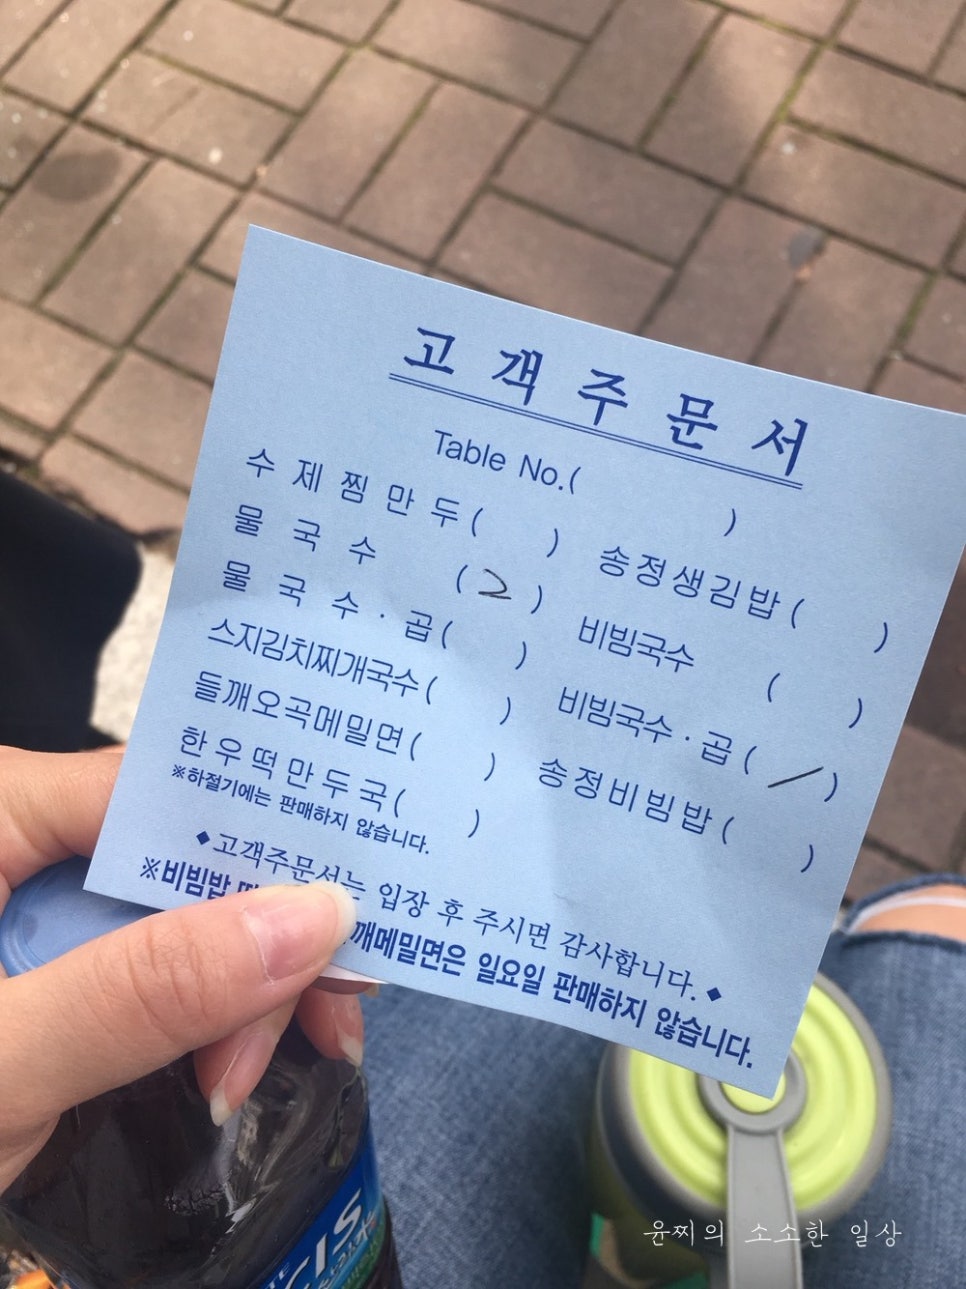 고객주문서
Table No.( )
수제찜만두( ) 송정생김밥( )
물국수 (2) 비빔국수 ( )
물국수·곱( ) 비빔국수·곱( / )
스지김치찌개국수( ) 송정비빔밥( )
들깨오곡메밀면( )
한우떡만두국( )
※하절기에는 판매하지 않습니다.
◆고객주문서는 입장 후 주시면 감사합니다.◆
※비빔밥 깨메밀면은 일요일 판매하지 않습니다.
윤찌의 소소한 일상